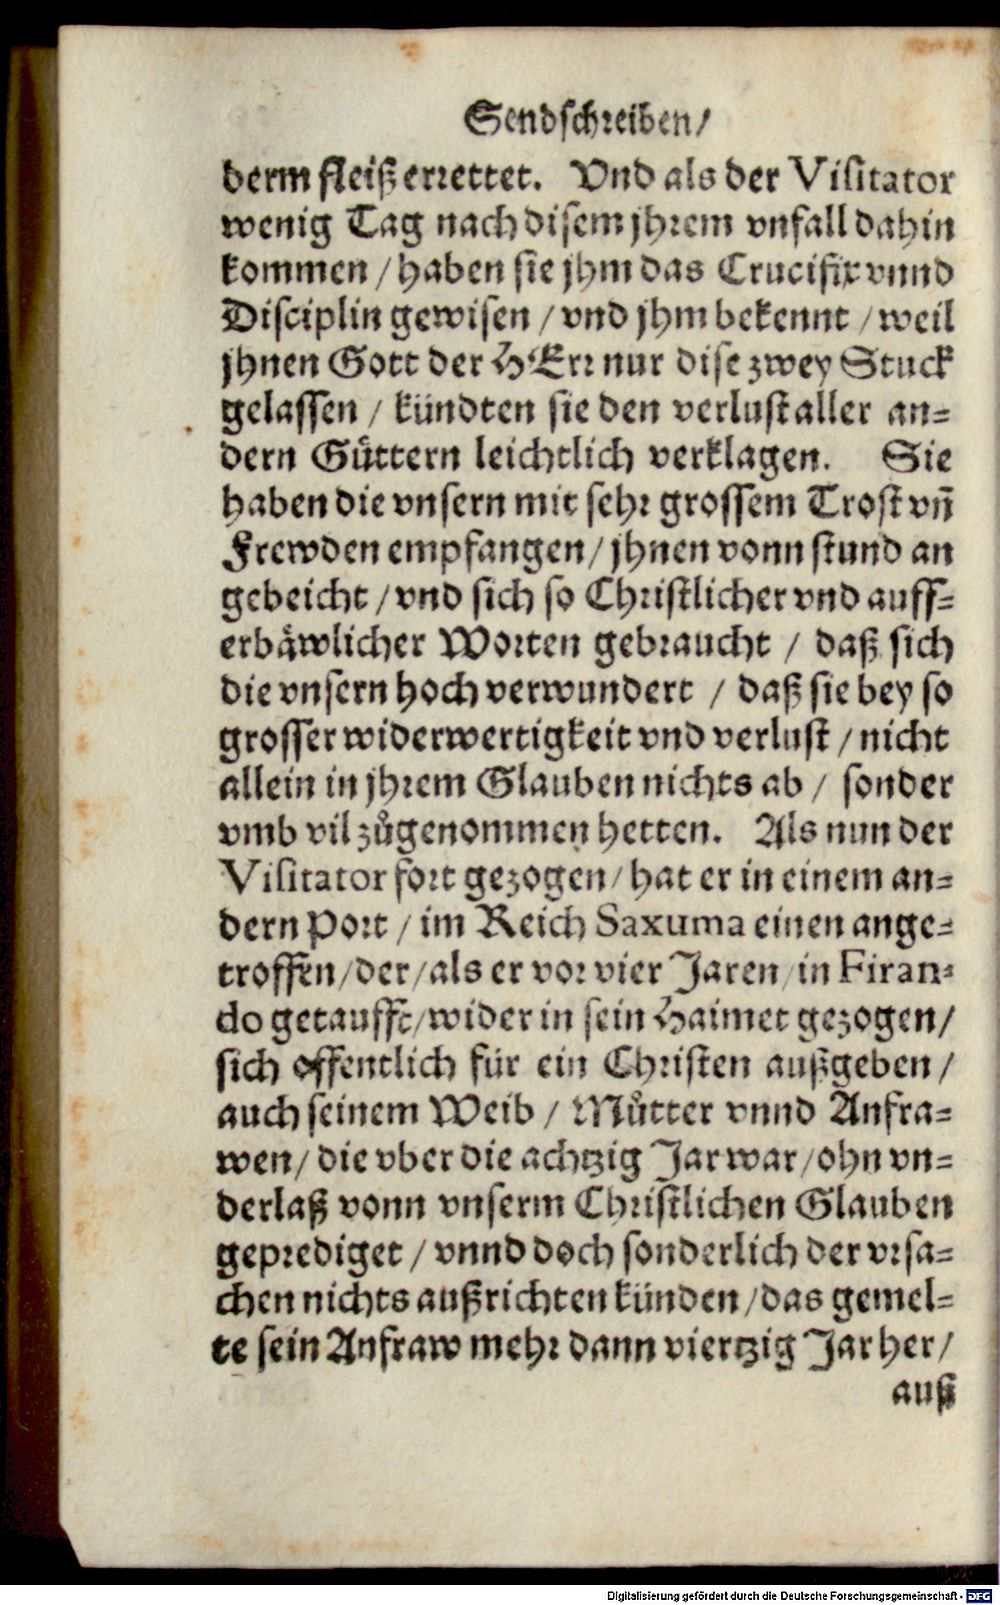 Sendschreiben/
derm fleiß errettet. Vnd als der Visitator
wenig Tag nach disem jhrem vnfall dahin
kommen / haben sie jhm das Crucifix vnnd
Disciplin gewisen / vnd jhm bekennt / weil
jhnen Gott der HErr nur dise zwey Stuck
gelassen / kündten sie den verlust aller an-
dern Güttern leichtlich verklagen. Sie
haben die vnsern mit sehr grossem Trost vñ
Frewden empfangen / jhnen vonn stund an
gebeicht / vnd sich so Christlicher vnd auff-
erbäwlicher Worten gebraucht / daß sich
die vnsern hoch verwundert / daß sie bey so
grosser widerwertigkeit vnd verlust / nicht
allein in jhrem Glauben nichts ab / sonder
vmb vil zůgenommen hetten. Als nun der
Visitator fort gezogen / hat er in einem an-
dern Port / im Reich Saxuma einen ange-
troffen / der / als er vor vier Jaren / in Firan-
do getaufft / wider in sein Haimet gezogen /
sich offentlich für ein Christen außgeben /
auch seinem Weib / Mütter vnnd Anfra-
wen / die vber die achtzig Jar war / ohn vn-
derlaß vonn vnserm Christlichen Glauben
geprediget / vnnd doch sonderlich der vrsa-
chen nichts außrichten künden / das gemel-
te sein Anfraw mehr dann viertzig Jar her /
auß
Digitalisierung gefördert durch die Deutsche Forschungsgemeinschaft - DFG